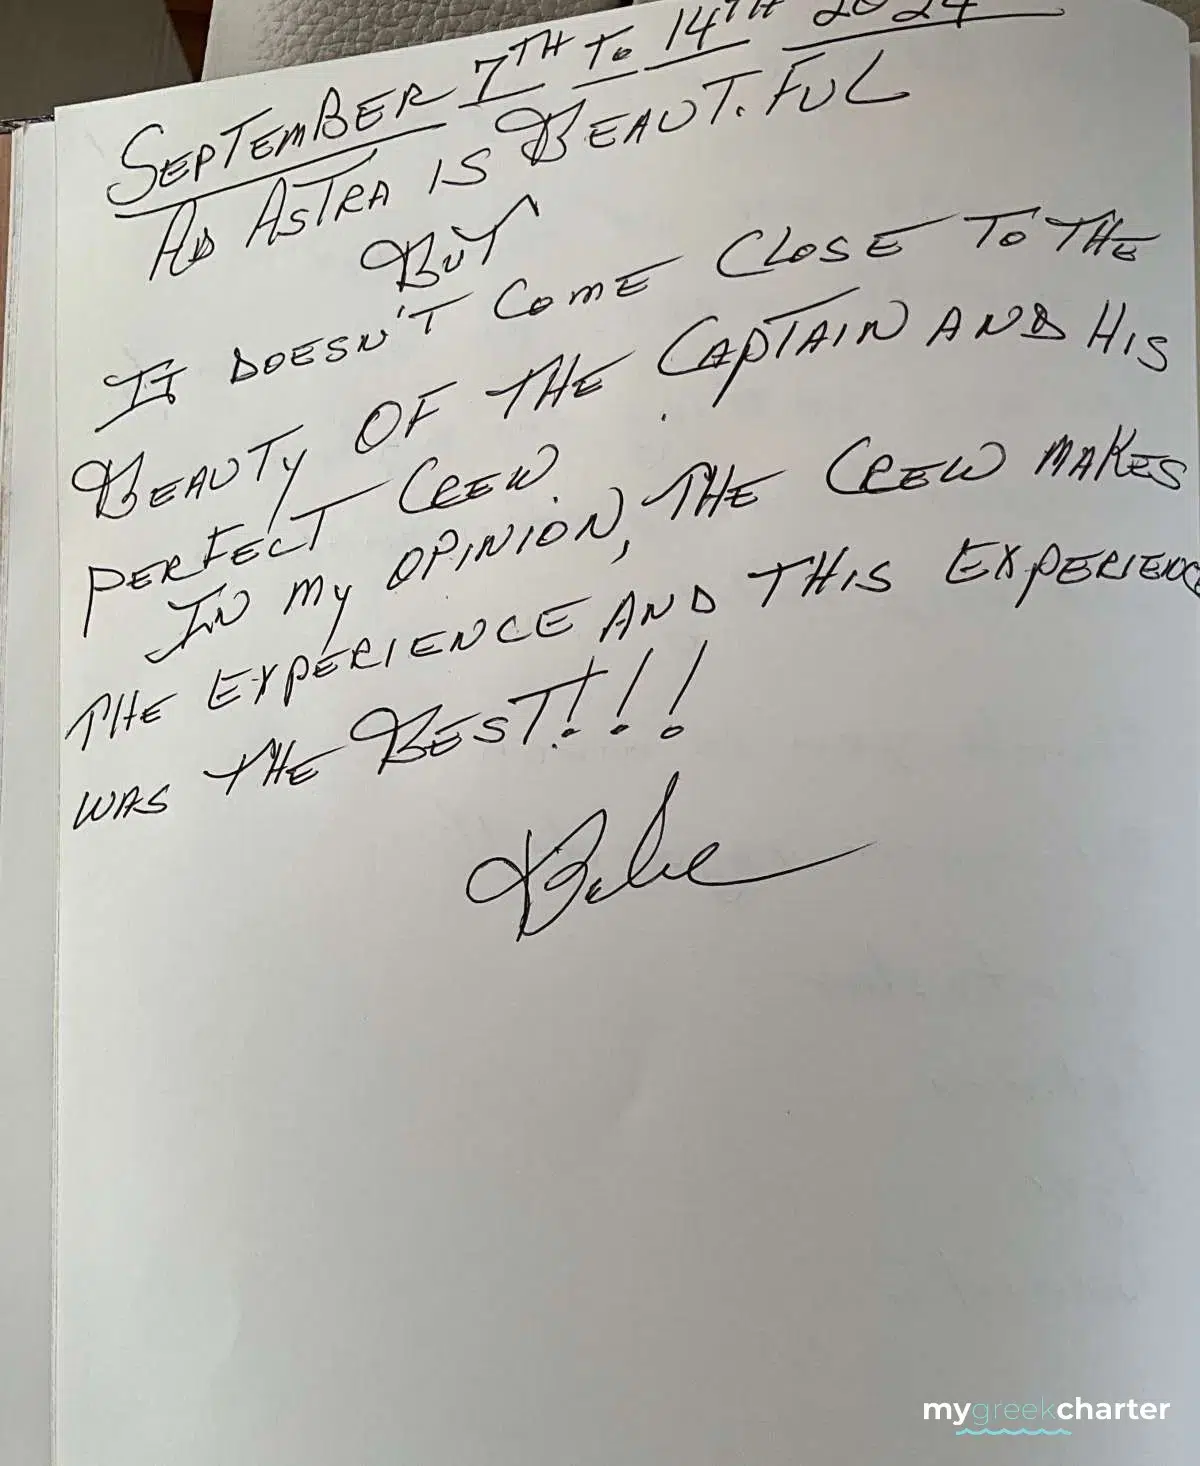 SEPTEMBER 7TH TO 14TH 2024
AD ASTRA IS BEAUTIFUL
BUT
IT DOESN'T COME CLOSE TO THE
BEAUTY OF THE CAPTAIN AND HIS
PERFECT CREW.
IN MY OPINION, THE CREW MAKES
THE EXPERIENCE AND THIS EXPERIENCE
WAS THE BEST!!!
mygreekcharter